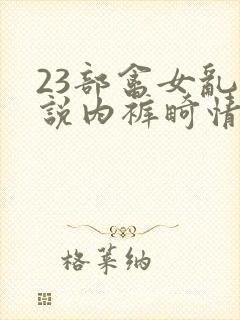 23部畜女乱
説内裤畸情
格莱纳